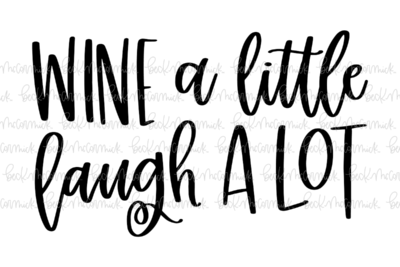 WINE a little
laugh A LOT